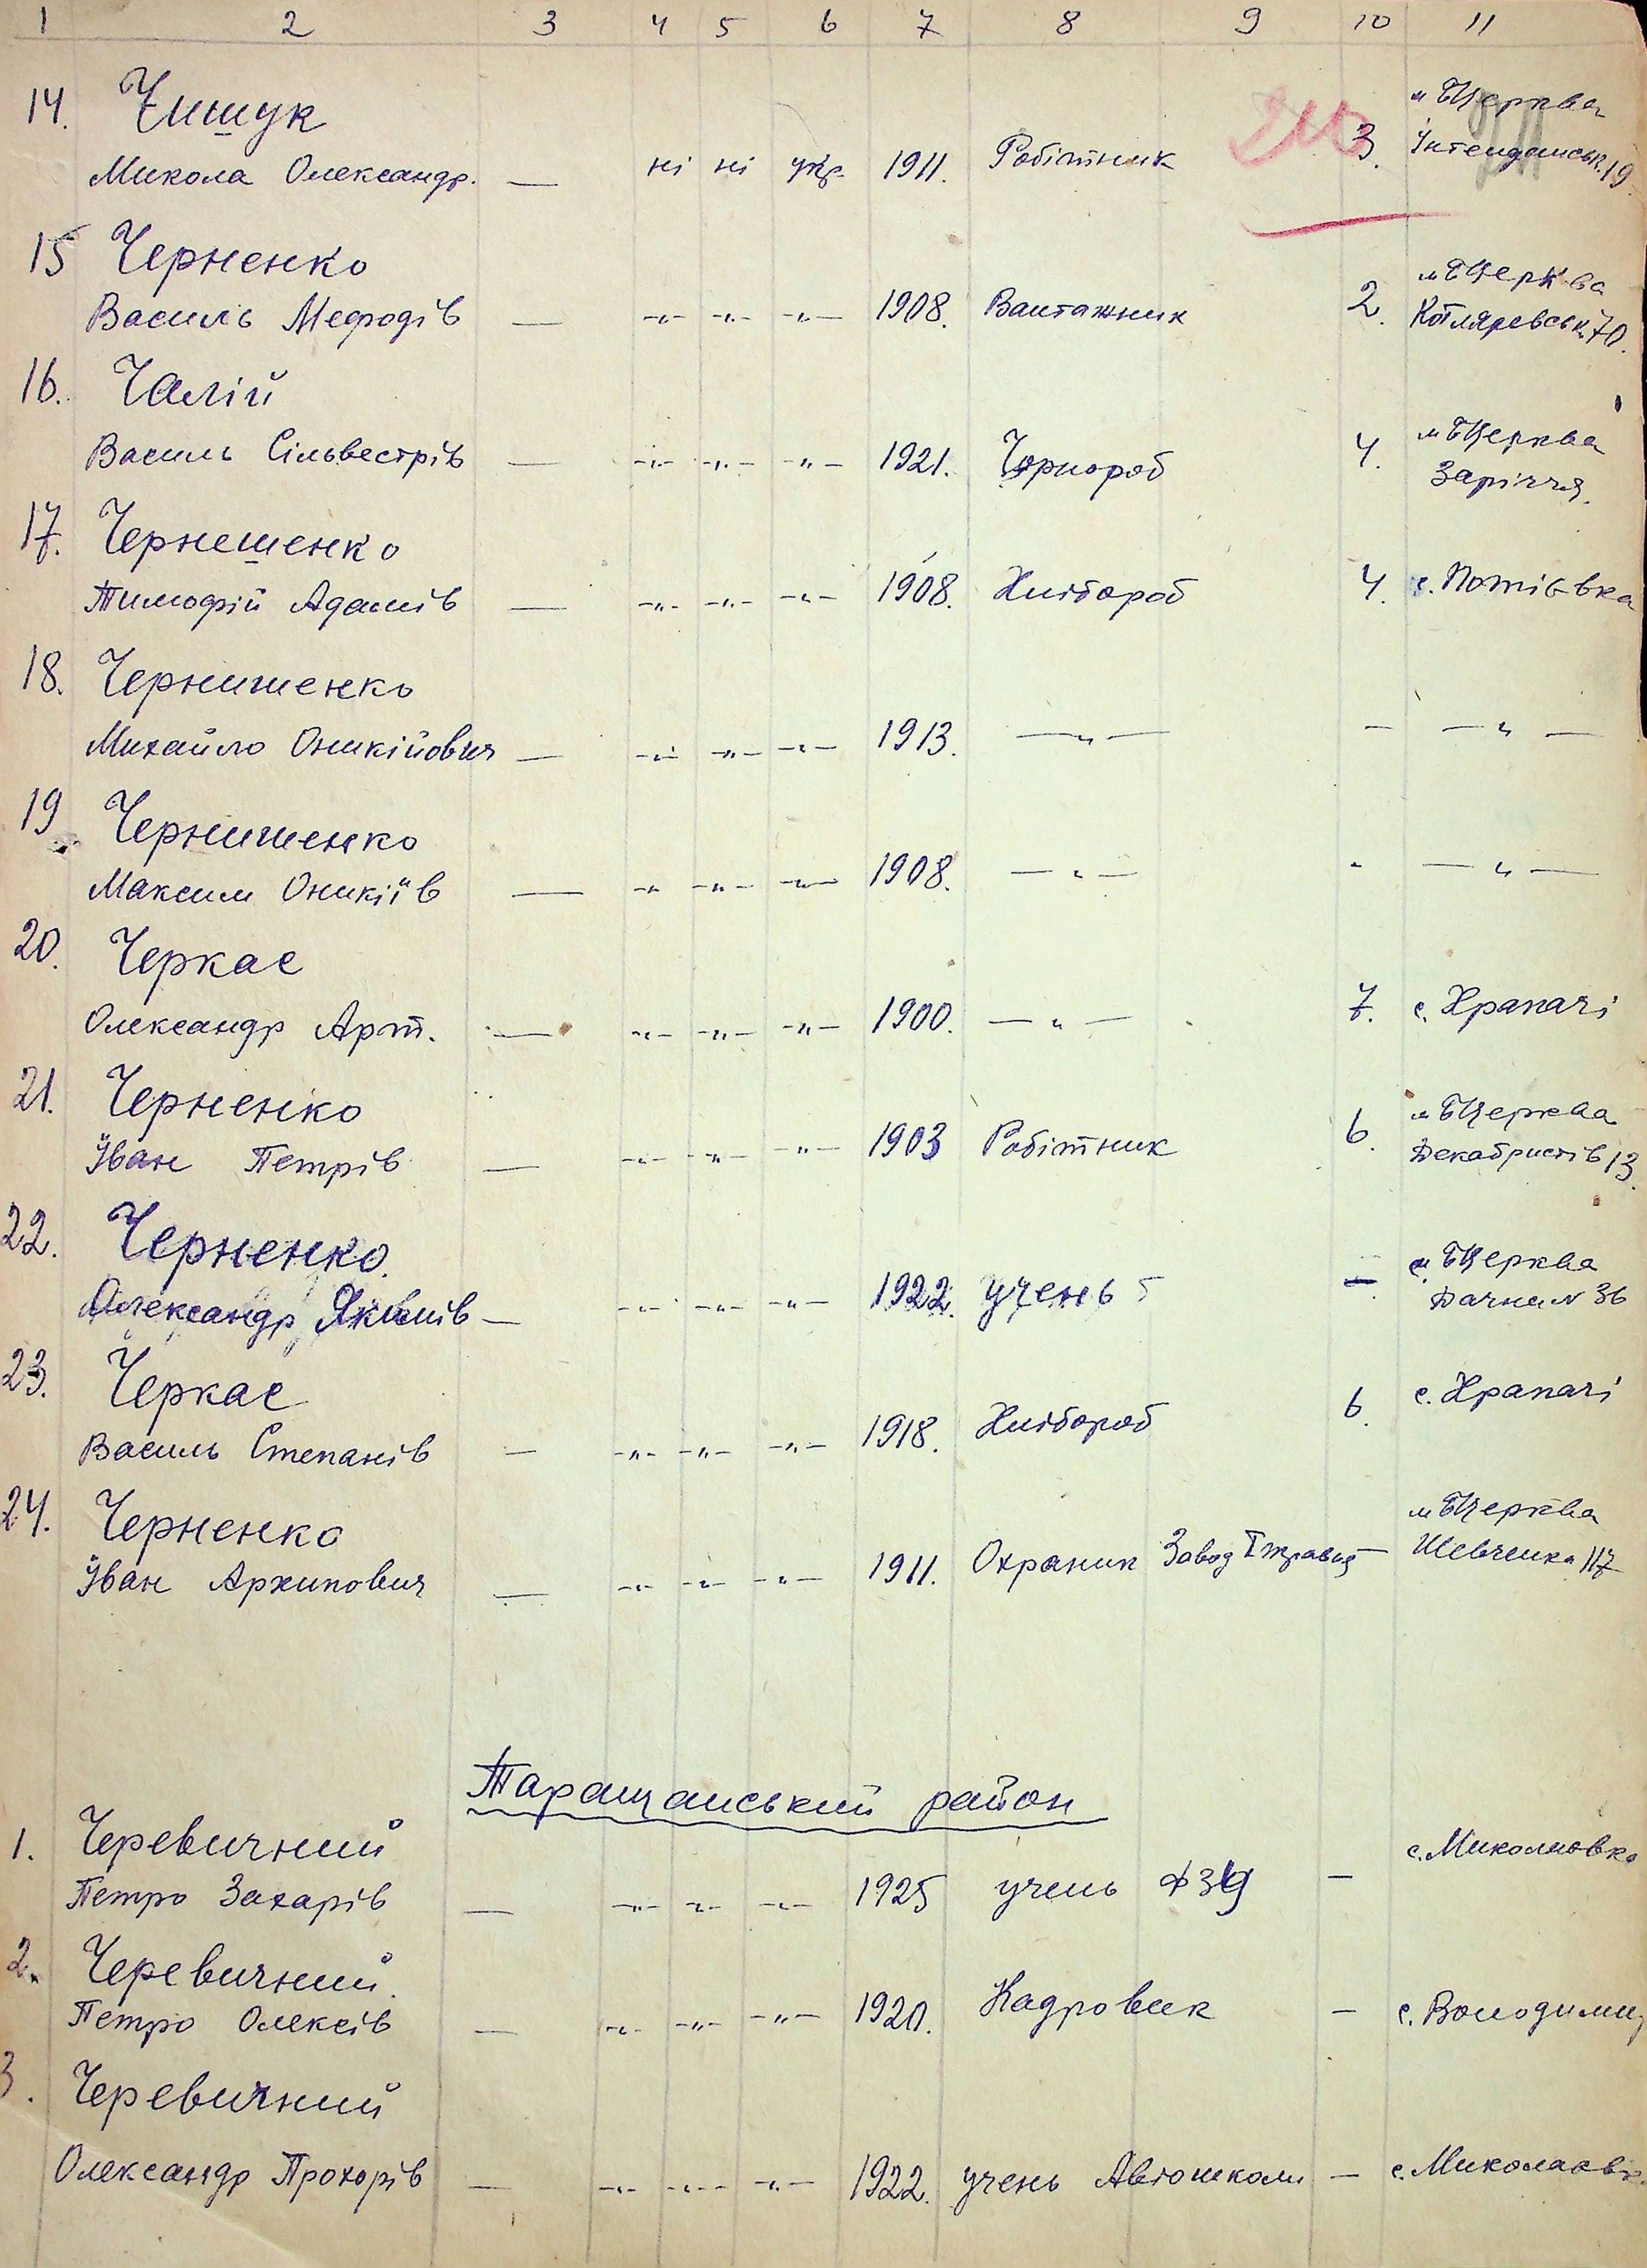 1 2 3 4 5 6 7 8 9 10 11
14. Чишук м БЦерква
Микола Олександр. — ні ні укр. 1911. Робітник 3. Інтенданськ. 19
15 Черненко м БЦерква
Василь Мефодів — -"- -"- -"- 1908. Вантажник 2. Котляревськ. 70.
16. Чалій м БЦерква
Василь Сільвестрів — -"- -"- -"- 1921. Чорнороб 4. Заріччя.
17. Чернешенко
Тимофій Адамів — -"- -"- -"- 1908. Хлібороб 4. с. Потіївка
18. Чернишенко
Михайло Оникійович — -"- -"- -"- 1913. —"— — —"—
19 Чернишенко
Максим Оникіїв — -"- -"- -"- 1908. —"— - —"—
20. Черкас
Олександр Арт. — -"- -"- -"- 1900. —"— 7. с. Храпачі
21. Черненко м БЦерква
Іван Петрів — -"- -"- -"- 1903 Робітник 6. Декабристів 13.
22. Черненко. м БЦерква
Олександр Якимів — -"- -"- -"- 1922. учень — Дачна N 36
23. Черкас
Василь Степанів — -"- -"- -"- 1918. Хлібороб 6. с. Храпачі
24. Черненко м БЦерква
Іван Архипович — -"- -"- -"- 1911. Охраник Завод — Шевченка 117
Таращанський район
1. Черевичний
Петро Захарів — -"- -"- -"- 1925 учень ФЗУ — с. Миколаівка
2. Черевичний.
Петро Олексів — -"- -"- -"- 1920. Кадровик — с. Володими
3. Черевичний
Олександр Прохорів — -"- -"- -"- 1922. учень Автошколи — с. Миколаєвк.